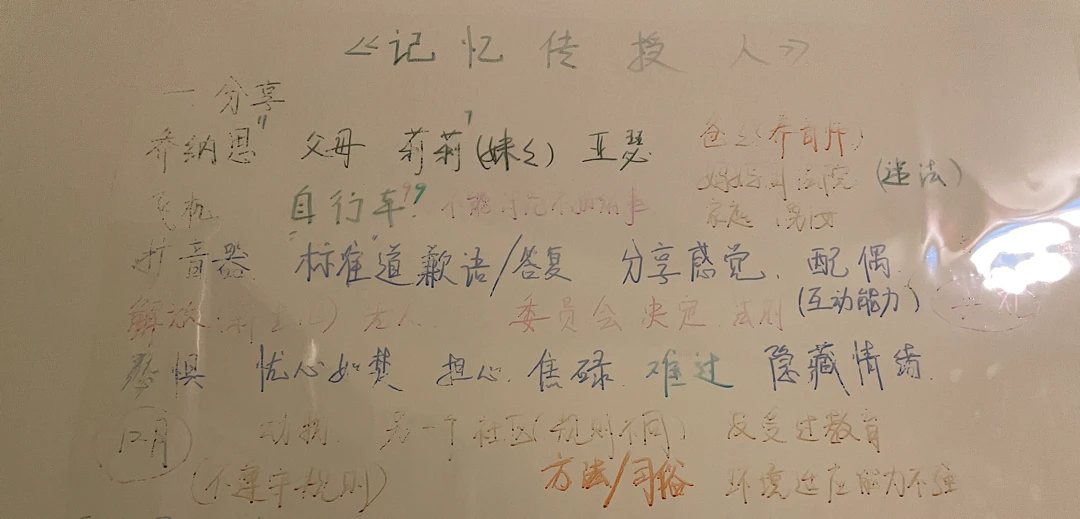 《记忆传授人》
一.分享
乔纳思 11 父母 莉莉 7 (妹妹) 亚瑟 爸爸(养育所)
妈妈 法院 (违法)
飞机 自行车 99 不 家庭
扩音器 "标准"道歉语/答复 分享感觉. 配偶
解放 老人. 委员会 决定 法则 (互动能力)
惧 忧心如焚 担心. 焦碌 难过 隐藏情绪.
12月 动物. 另一个社区(规则不同) 没受过教育
(不遵守规则) 方法/习俗 环境适应能力不强